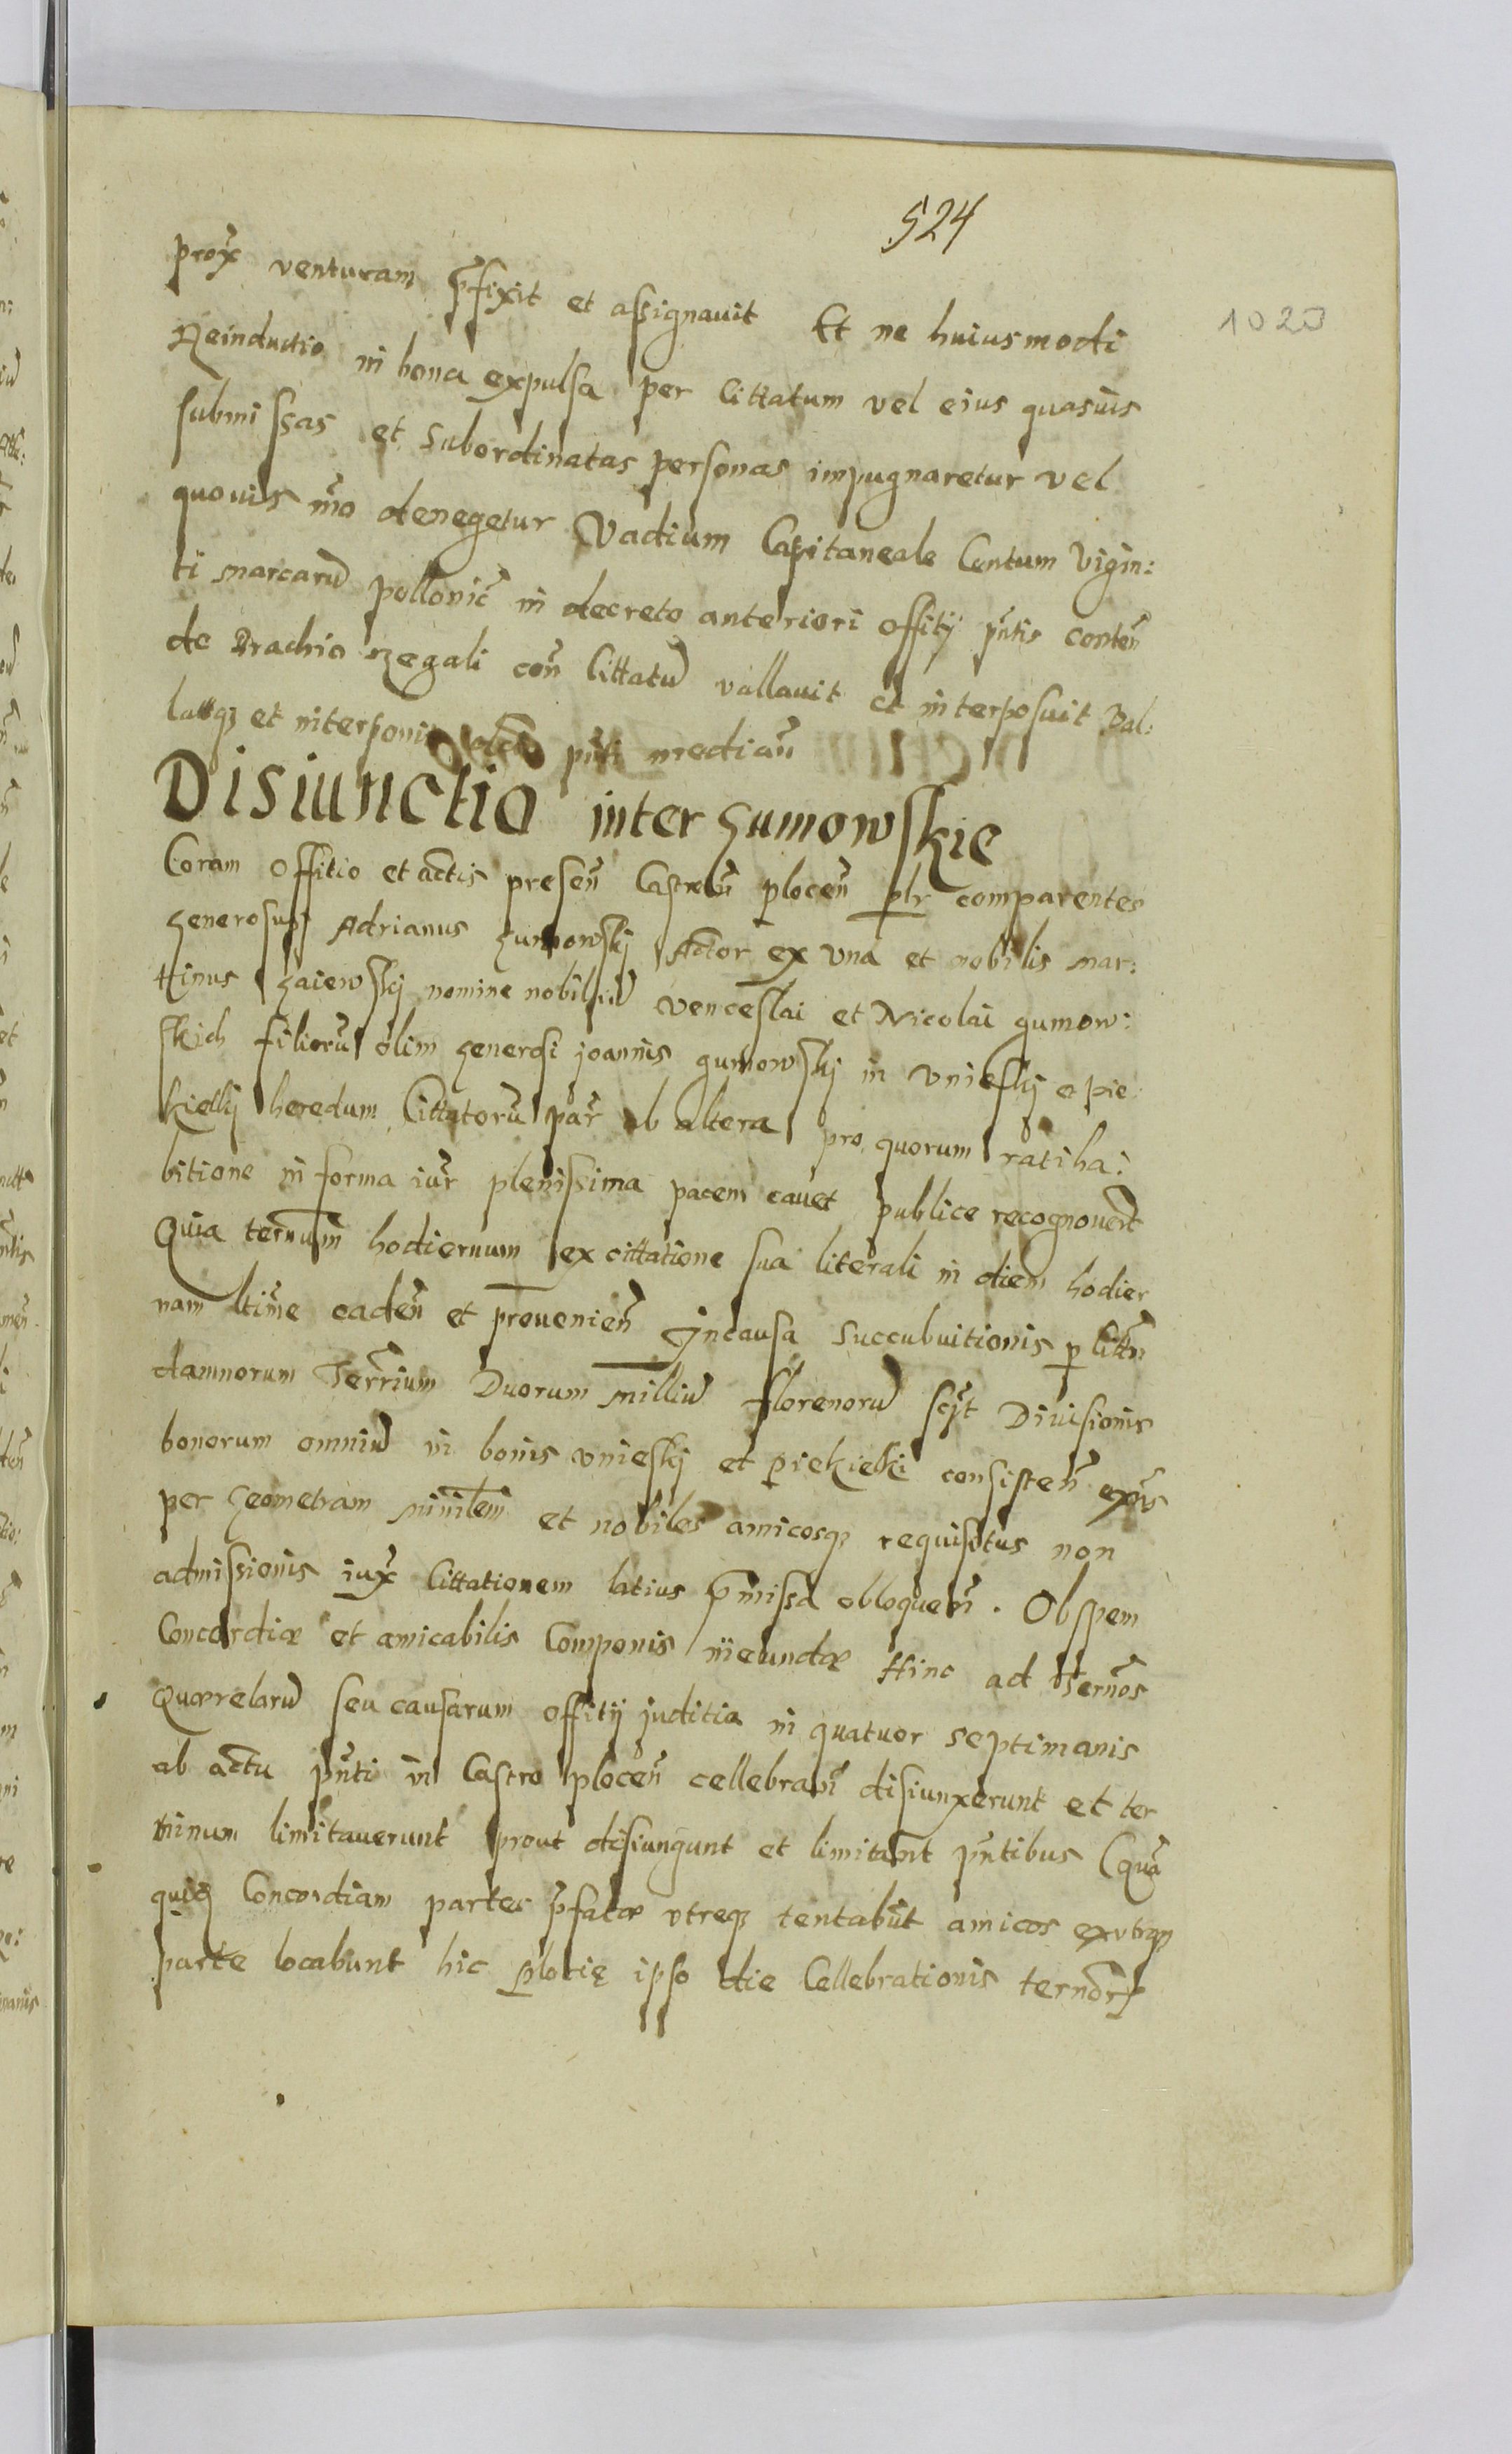 524
1023
prox̃ venturam p̃fixit et assignauit Et ne huiusmodi
Reinductio in bona expulsa per Cittatum vel eius quasuis
submissas et subordinatas personas impugnaretur vel
quouis mõ denegetur Vadium Capitaneale Centum Vigin:
ti marcarũ pollonic̃ in decreto anteriori offitij pñtis conteñ
de Brachio Regali coñ Cittatũ vallauit et interposuit Val:
latqꝫ et interponit pñti mediañ
Disiunctio inter Gumowskie
Coram Offitio et actis preseñ Castreñ ploceñ plr̃ comparentes
Generosus Adrianus Gumowskj Actor ex vna et nobilis Mar:
tinus Gaiewskj nomine nobiliũ Venceslai et Nicolai gumow:
skich filiorũ olim Generosi joannis gumowskj in Vnieskj et Pie
kielkj heredum Cittatorũ par̃ ab altera pro quorum ratiha:
bitione in forma iur̃ plenissima pacem cauet publice recognouerũt
Quia termũm hodiernum ex cittatione sua literali in diem hodier
nam ltime cadeñ et proueniẽn In causa succubuitionis p Cittũ
damnorum Terr̃ium Duorum Milliũ florenorũ scijt Diuisionis
bonorum omniũ in bonis vnieskj et piekielki consisteñ exñs
per Geometram et nobiles amicosqꝫ requisitus non
admissionis iux̃ Cittationem latius p̃missa obloqueñ. Ob spem
Concordiæ et amicabilis Componis ineundæ Hinc ad Termõs
Quærelarũ seu causarum offitij juditia in quatuor septimanis
ab actu pñti in Castro ploceñ cellebrañ disiunxerunt et ter
minum limitauerunt prout disiungunt et limitant pñtibus (quã
quiđ Concordiam partes p̃fatæ vtreqꝫ tentabũt amicos ex vtraqꝫ
parte locabunt hic plocię ipso die Cellebrationis termõrꝫ